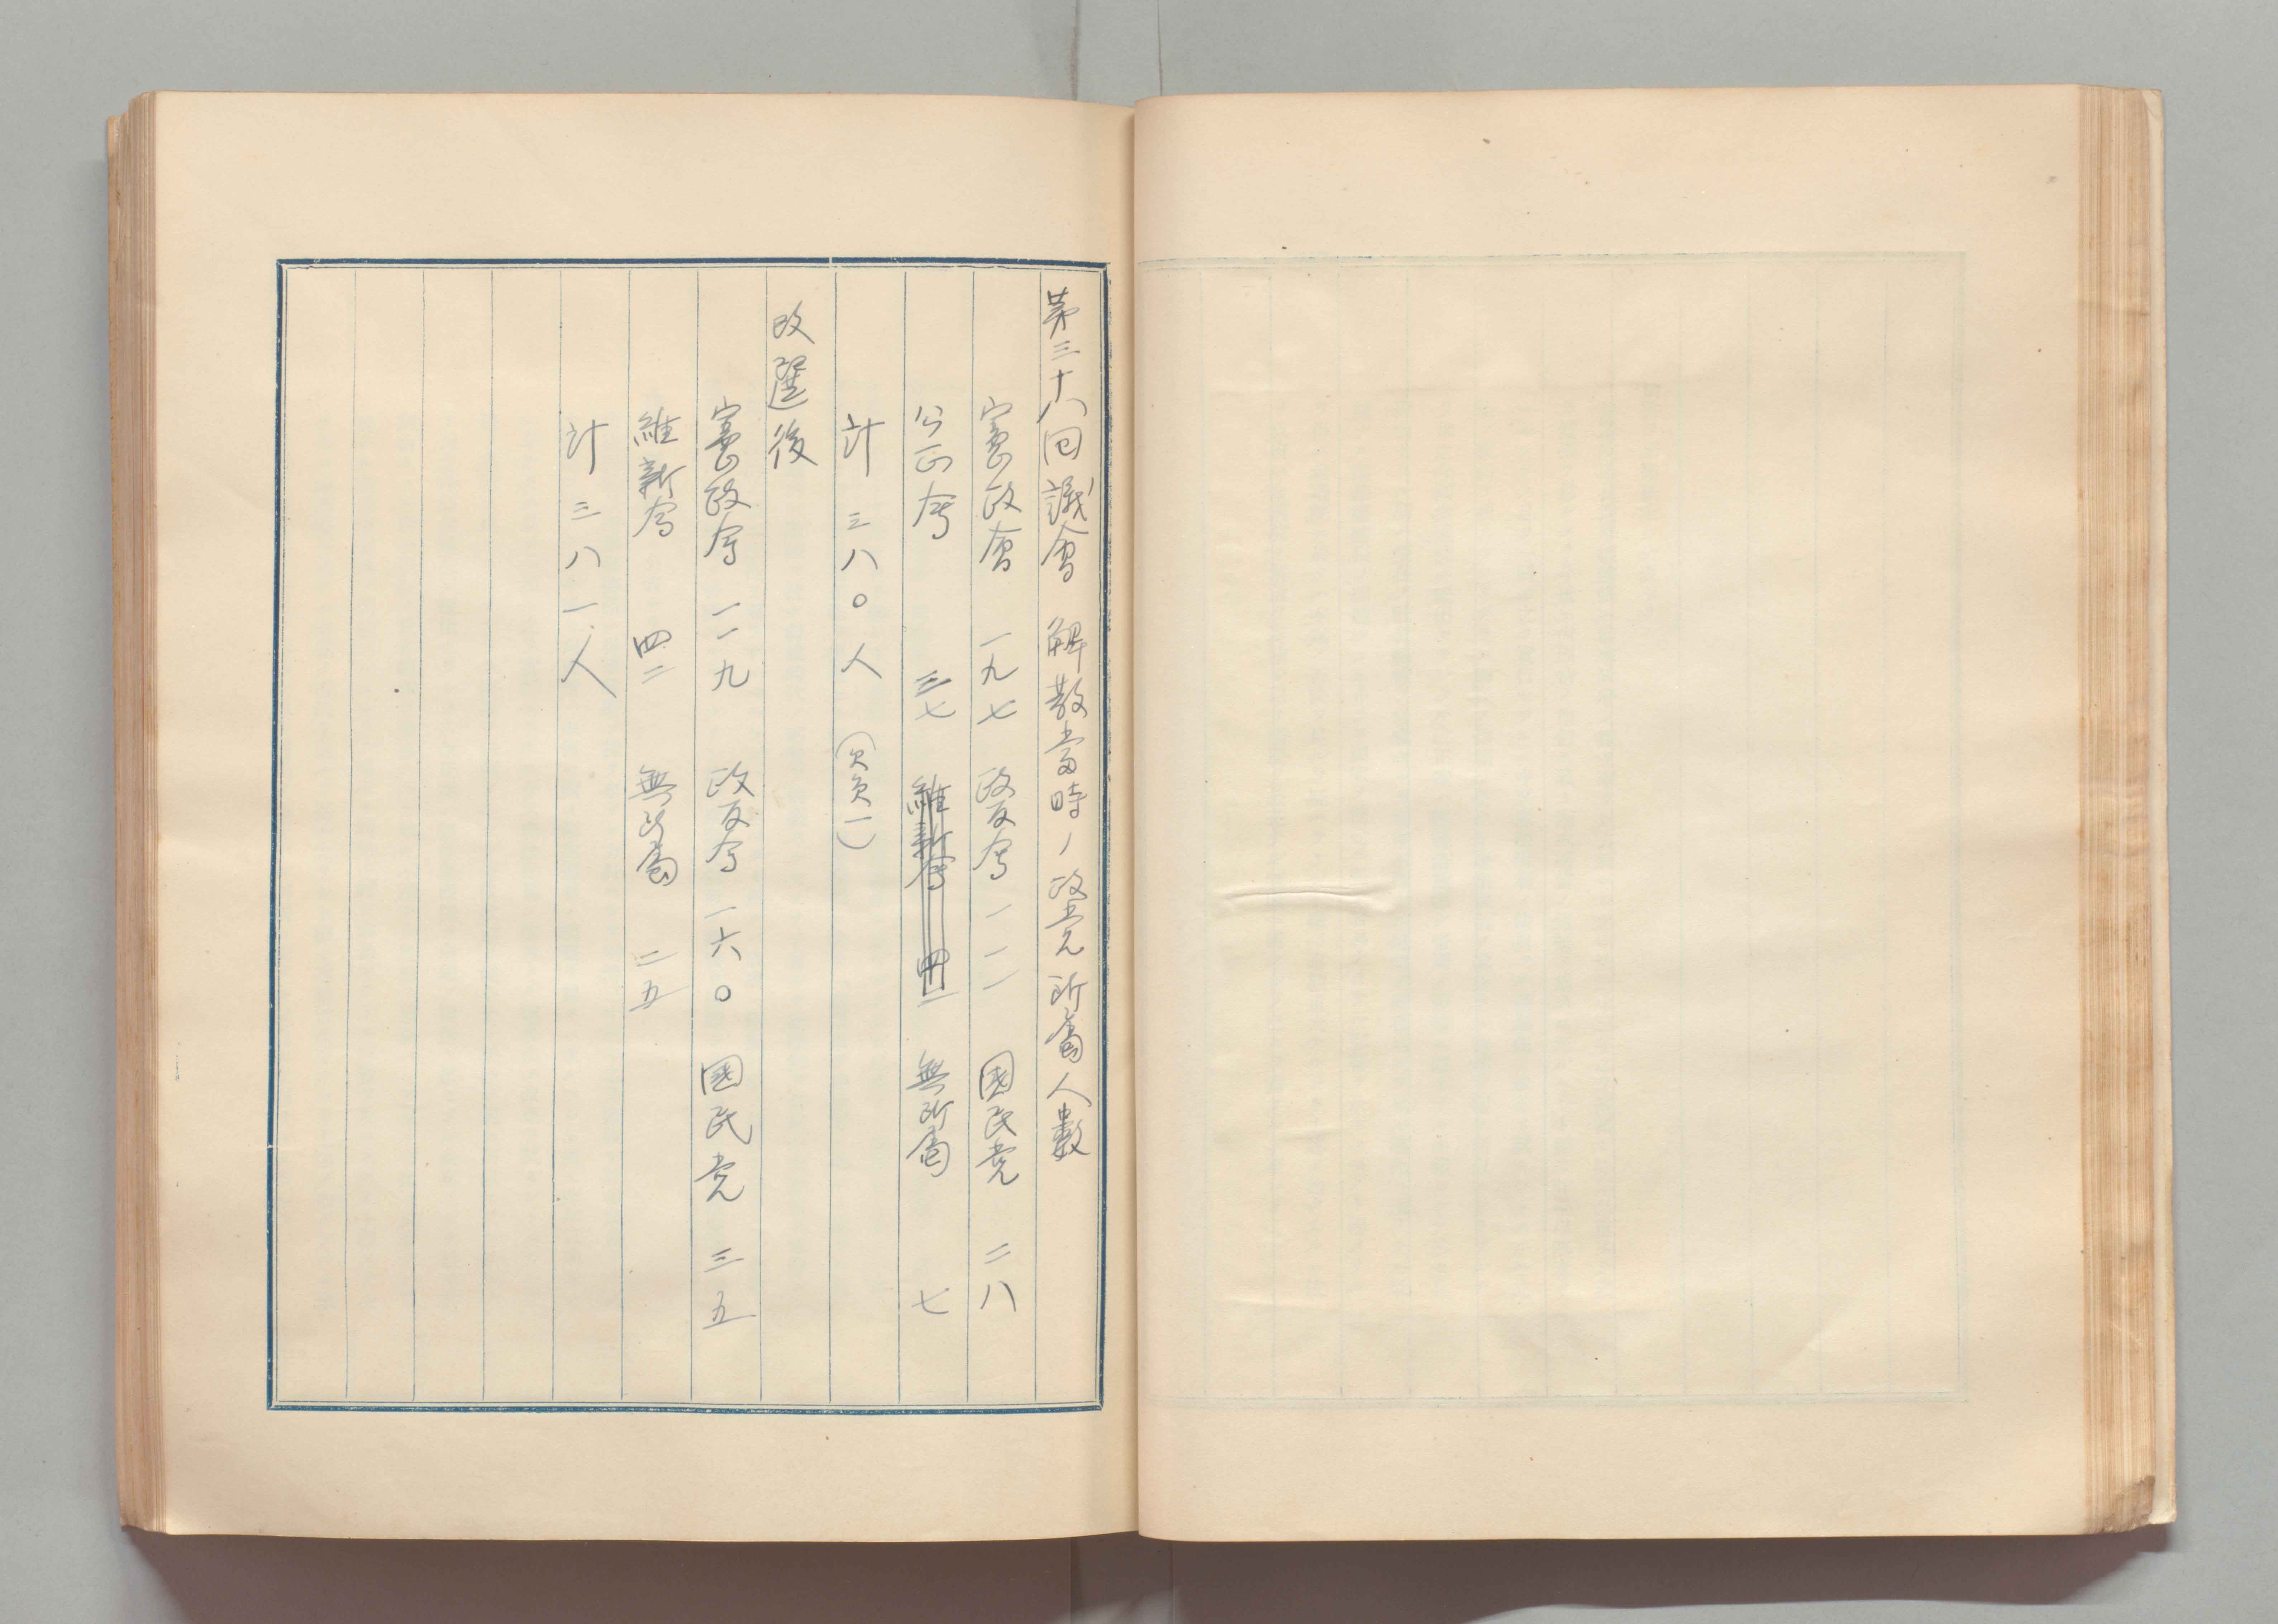 第三十八回議會 解散當時ノ政党所属人数
憲政會 一九七 政友會 一一一 國民党 二八
公正會 三七 維新會 四二 無所属 七
計 三八〇人 (欠員一)
改選後
憲政會 一一九 政友會 一六〇 國民党 三五
維新會 四二 無所属 二五
計 三八一人